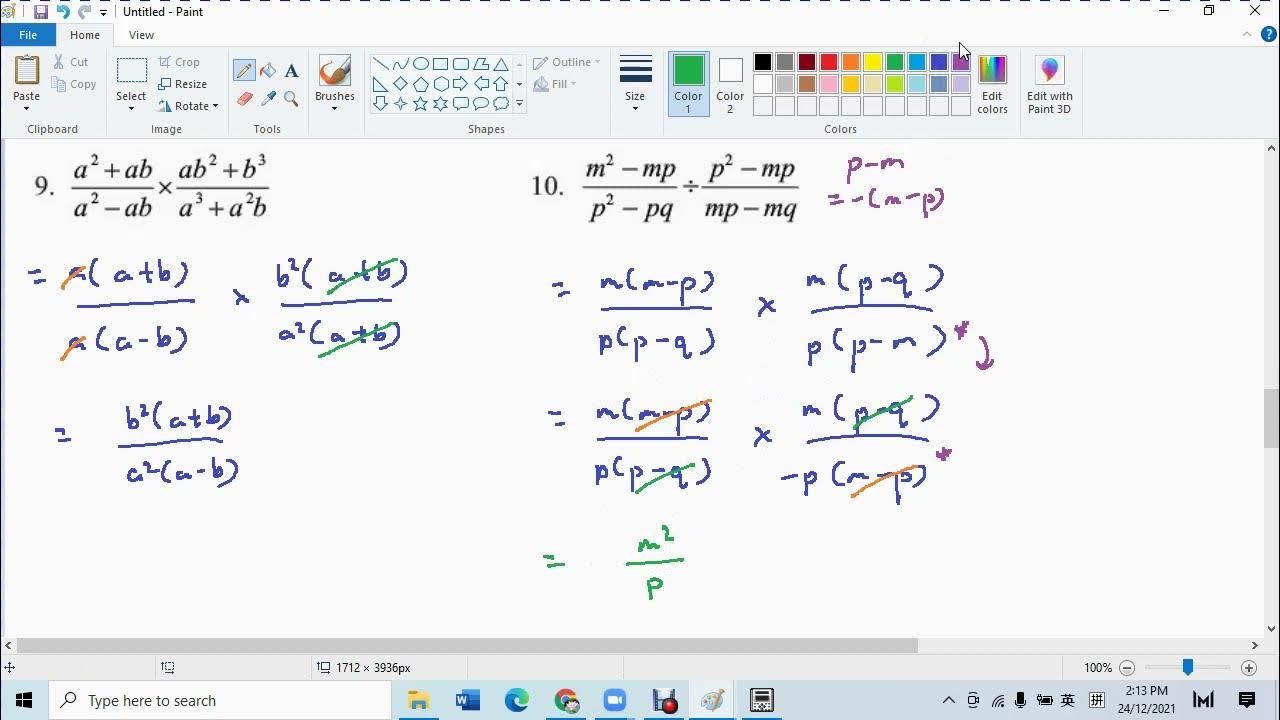 Untitled - Paint
File Home View
Paste
Cut
Copy
Clipboard
Select
Crop
Resize
Rotate
Image
A
Tools
Brushes
Outline
Fill
Shapes
Size
Color 1
Color 2
Edit colors
Edit with Paint 3D
Colors
9. (a² + ab)/(a² − ab) × (ab² + b³)/(a³ + a²b)
= a(a+b)/a(a-b) × b²(a+b)/a²(a+b)
= b²(a+b)/a²(a-b)
10. (m² − mp)/(p² − pq) ÷ (p² − mp)/(mp − mq)
p-m
= -(m-p)
= m(m-p)/p(p-q) × m(p-q)/p(p-m) *
= m(m-p)/p(p-q) × m(p-q)/-p(m-p) *
= m²/p
1712 × 3936px
100%
Type here to search
英
拼
2:13 PM
24/12/2021